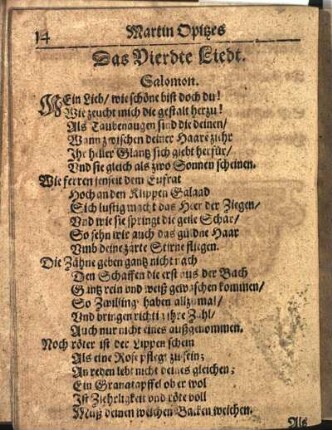 14
Martin Opitzes
Das Vierdte Liedt.
Salomon.
MEin Lieb/ wie schöne bist doch du!
Wie zeucht mich die gestalt herzu!
Als Taubenaugen sind die deinen/
Wann zwischen deiner Haare ziehr
Ihr heller Glantz sich giebt herfür/
Vnd sie gleich als zwo Sonnen scheinen.
Wie ferren jenseit dem Eufrat
Hoch an den Klippen Galaad
Sich lustig macht das Heer der Ziegen/
Vnd wie sie springt die geile Schar/
So sehn wir auch das güldne Haar
Vmb deine zarte Stirne fliegen.
Die Zähne geben gantz nicht nach
Den Schaffen die erst aus der Bach
Gantz rein vnd weiß gewaschen kommen/
So Zwillinge haben allzumal/
Vnd bringen richtig ihre Zahl/
Auch nur nicht eines außgenommen.
Noch röter ist der Lippen schein
Als eine Rose pflegt zu sein;
An reden lebt nicht deines gleichen;
Ein Granatapffel ob er wol
Ist Ziehrligkeit vnd röte voll
Muß deinen weichen Backen weichen.
Als